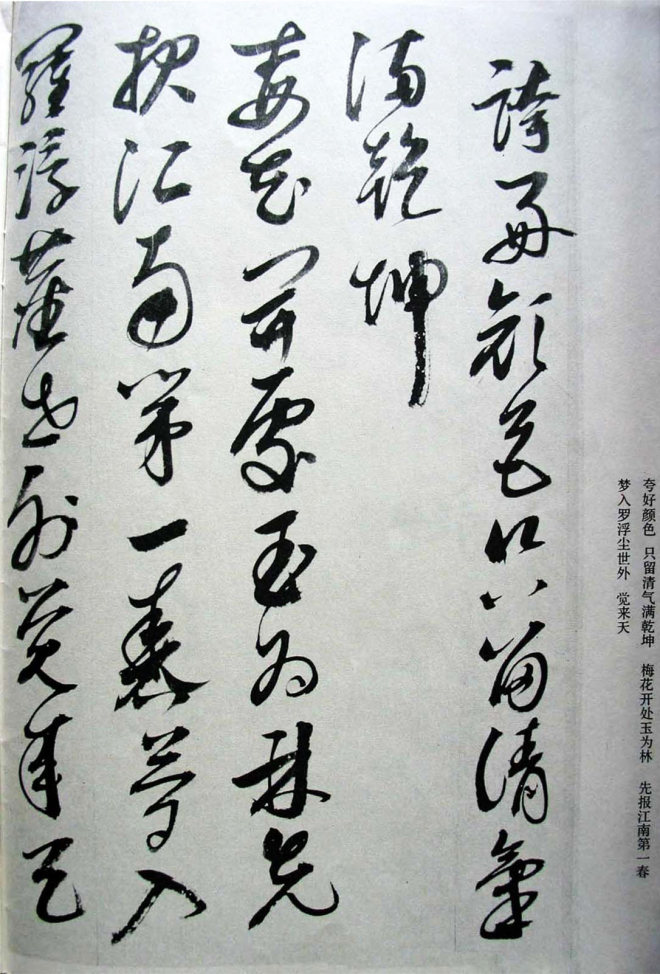 夸好颜色 只留清气满乾坤 梅花开处玉为林 先报江南第一春
梦入罗浮尘世外 觉来天
誇好顏色只留清氣
滿乾坤
梅花開處玉為林先
報江南第一春夢入
羅浮塵世外覺來天